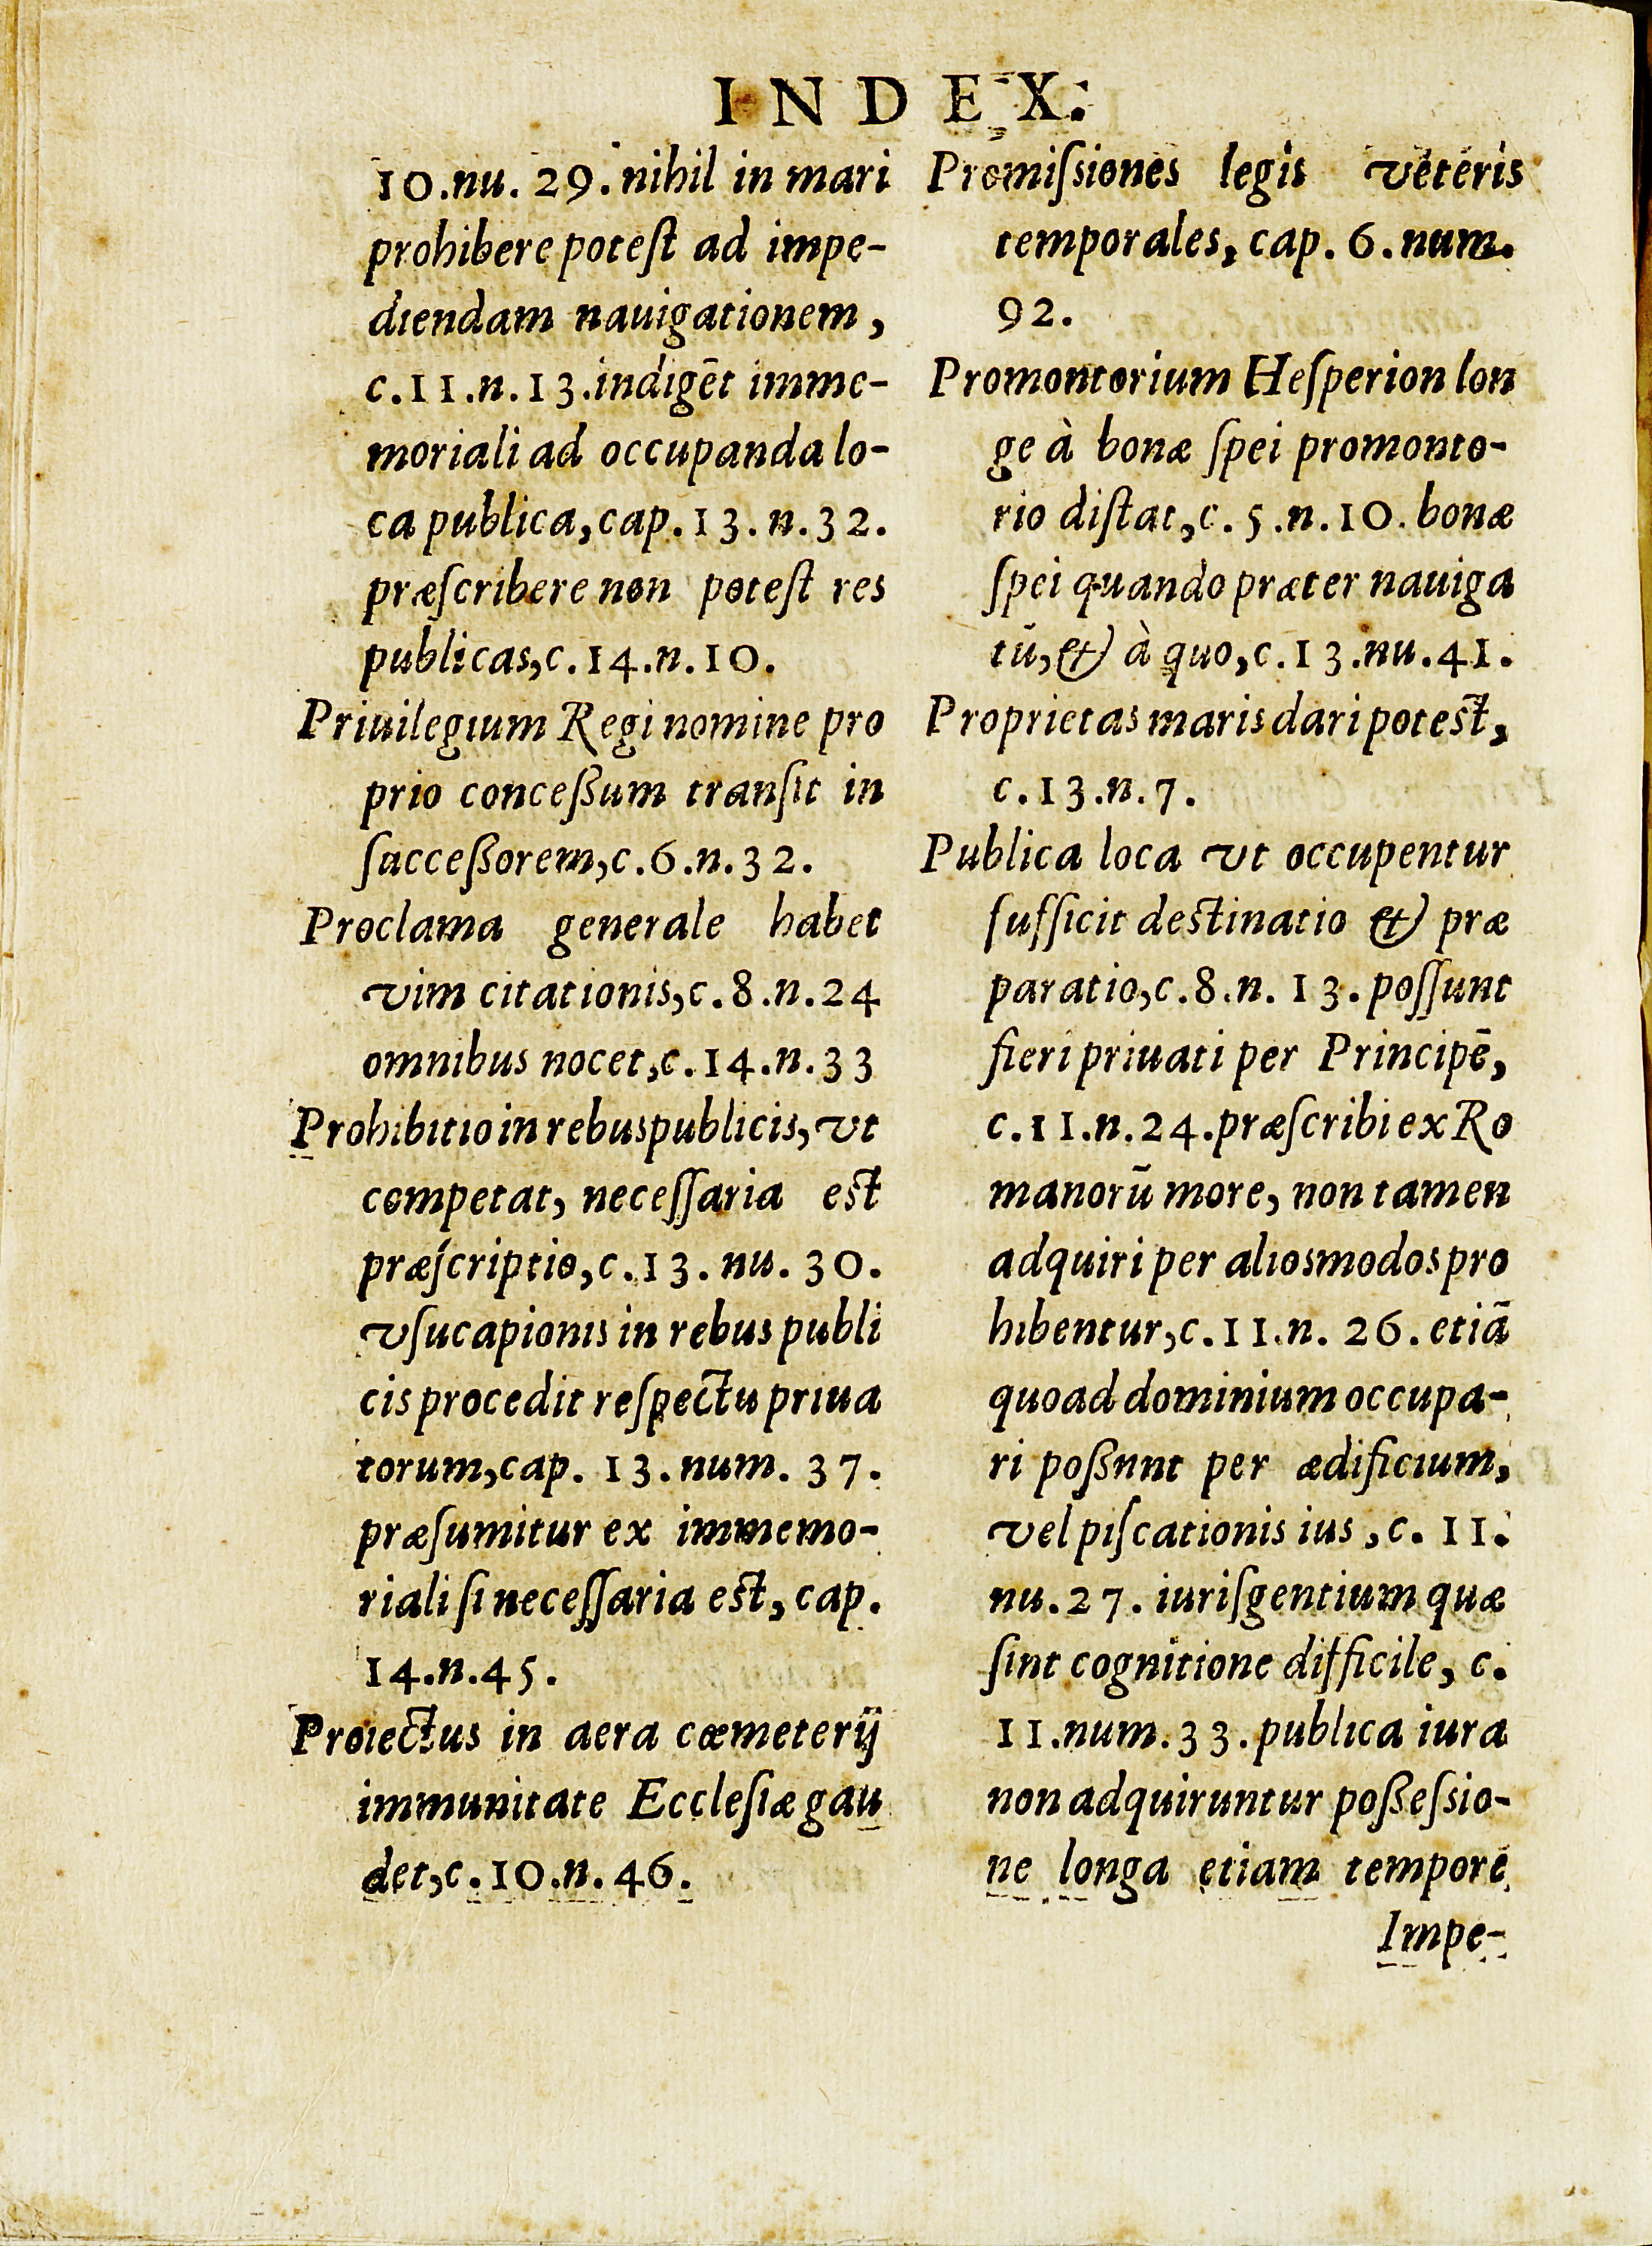 INDEX.
10.nu. 29. nihil in mari
prohibere poteſt ad impe-
diendam nauigationem,
c.11.n.13.indigēt imme-
moriali ad occupanda lo-
ca publica, cap.13.n.32.
præſcribere non poteſt res
publicas, c.14.n.10.
Priuilegium Regi nomine pro
prio conceßum tranſit in
ſucceßorem, c.6.n.32.
Proclama generale habet
vim citationis, c.8.n.24
omnibus nocet, c.14.n.33
Prohibitio in rebus publicis, vt
competat, neceſſaria est
præſcriptio, c.13. nu. 30.
vſucapionis in rebus publi
cis procedit reſpectu priua
torum, cap. 13. num. 37.
præſumitur ex immemo-
riali ſi neceſſaria est, cap.
14.n.45.
Proiectus in aera cœmeterij
immunitate Eccleſiæ gau
det, c.10.n.46.
Promiſsiones legis veteris
temporales, cap. 6. num.
92.
Promontorium Heſperion lon
ge à bonæ ſpei promonto-
rio diſtat, c.5.n.10. bonæ
ſpei quando præter nauiga
tū, & à quo, c.13.nu.41.
Proprietas maris dari potest,
c.13.n.7.
Publica loca vt occupentur
ſufficit destinatio & præ
paratio, c.8.n. 13. poſſunt
fieri priuati per Principē,
c.11.n.24.præſcribi ex Ro
manorū more, non tamen
adquiri per alios modos pro
hibentur, c.11.n. 26. etiā
quoad dominium occupa-
ri poßnnt per ædificium,
vel piſcationis ius, c. 11.
nu.27. iuriſgentium quæ
ſint cognitione difficile, c.
11.num.33.publica iura
non adquiruntur poßeſsio-
ne longa etiam tempore
Impe-